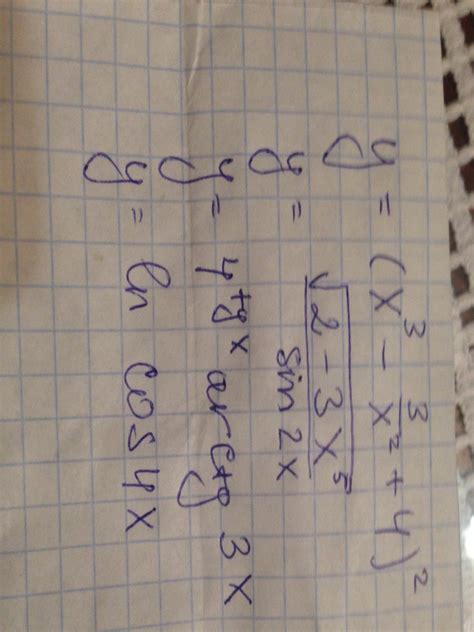 y = (x³ - 3/x² + 4)²
y = √(2 - 3x⁵) / sin2x
y = 4^(tg x) arctg 3x
y = ln cos4x